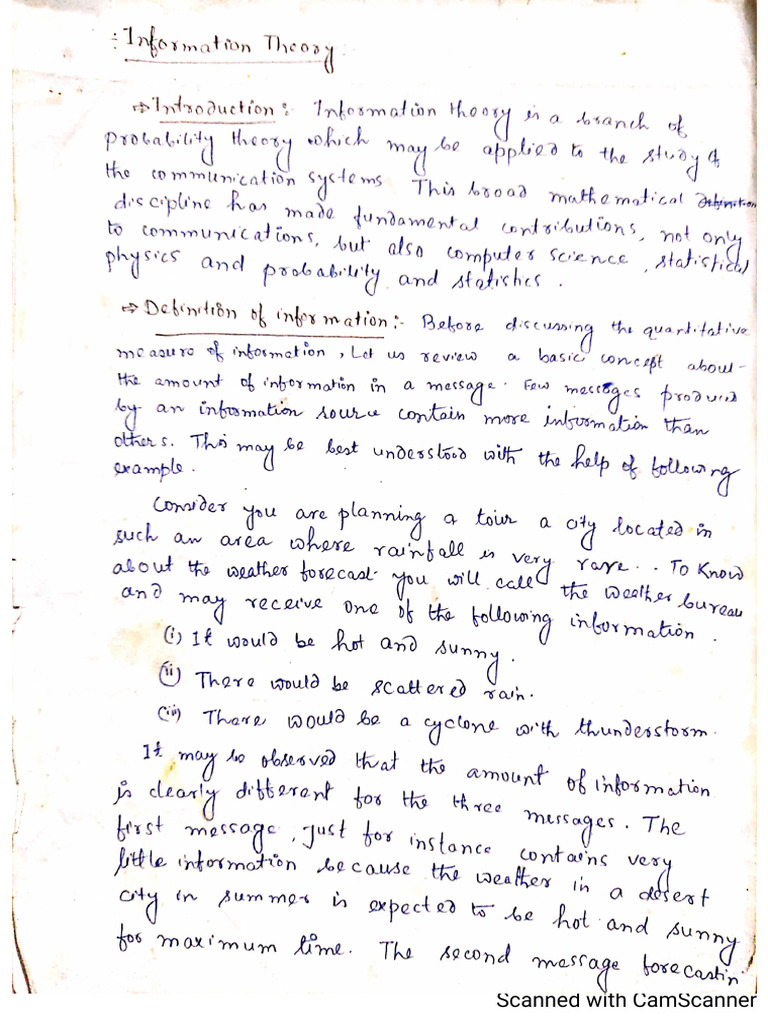 :- Information Theory
⇒ Introduction :- Information theory is a branch of
probability theory which may be applied to the study of
the communication systems. This broad mathematical
discipline has made fundamental contributions, not only
to communications, but also computer science, statistical
physics and probability and statistics.
⇒ Definition of information :- Before discussing the quantitative
measure of information, Let us review a basic concept about-
the amount of information in a message. Few messages produced
by an information source contain more information than
others. This may be best understood with the help of following
example.
Consider you are planning a tour a city located in
such an area where rainfall is very rare.. To Know
about the weather forecast you will call the weather bureau
and may receive one of the following information.
(i) It would be hot and sunny.
(ii) There would be scattered rain.
(iii) There would be a cyclone with thunderstorm.
It may be observed that the amount of information
is clearly different for the three messages. The
first message, just for instance contains very
little information because the weather in a desert
city in summer is expected to be hot and sunny
for maximum time. The second message forecastin
Scanned with CamScanner